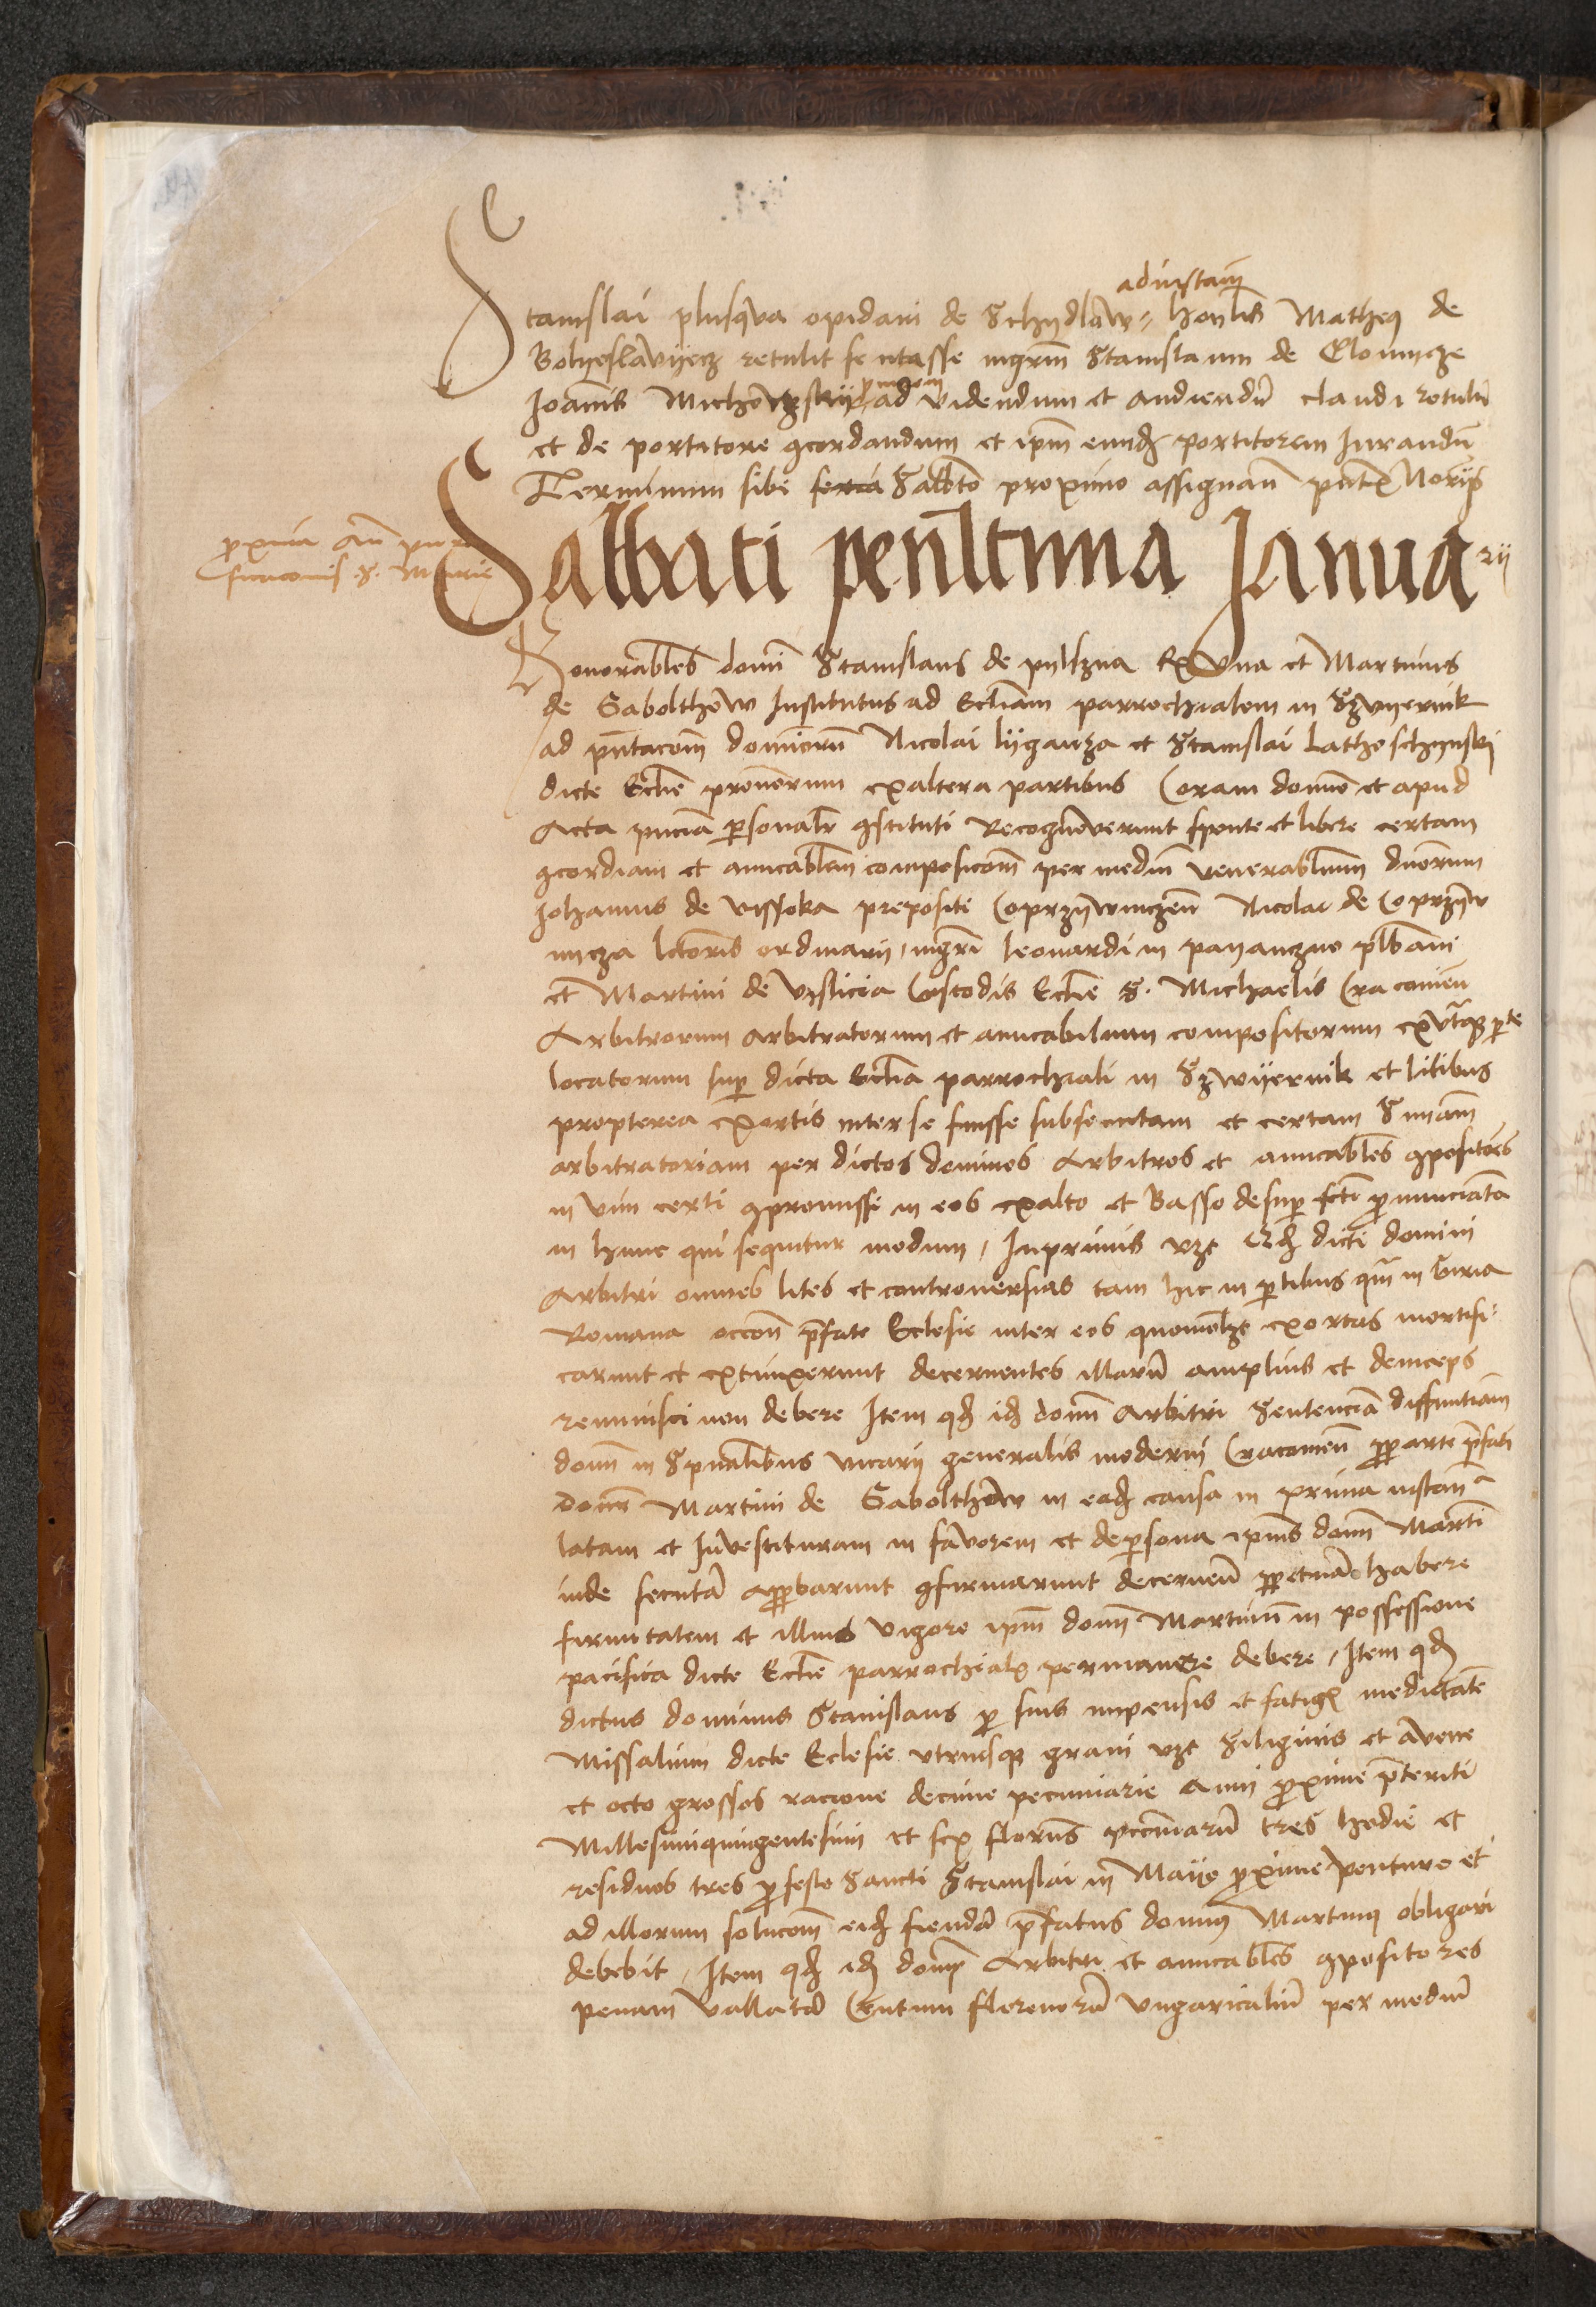 ad instan̄
Stanislai plusqva opidani de Schydlow honlis Matheus de
Bolyeslavyecz retulit se citasse mgrm̄ Stanislaum de Clomycze
Joan̄is Michowsky ad videndum et audiendū claudi rotulū
et de portatore ꝯcordandum et ip̄m eundꝫ portitorem Jurandū
Terminum sibi feria Sabb̄to proximo assignan̄ p̄ntꝫ Noriꝰ
p̄xima an̄
ficacionis S. Marie
Sabbati penultima Januarij
Honorabiles domī Stanislaus de pylszna Ex Vna et Martinus
de Gabolthow Institutus ad Eccliam parrochialem in Szvyernik
ad p̄ntacōm dominorū Nicolai lyganza et Stanislai Lathoschynski
dicte Ecclie p̄ronorum ex altera partibus Coram domīo et apud
Acta p̄ncia p̄sonalr ꝯstituti Recognoverunt sponte et libere certam
ꝯcordiam et amicabilem composicōm per mediū venerabilium dn̄orum
Johannis de vissoka prepositi Coprzywniczen̄ Nicolai de Coprzyw
nycza lectoris ordinarij, mgrī leonardi in paczano plb̄ani
et Martini de Vislicia Custodis Ecclie S. Michaelis Cracovien̄
Arbitrorum arbitratorum et amicabilium compositorum ex utraqꝫ p̄te
locatorum sup̄ dicta Ecclia parrochiali in Szwyernik et litibus
propterea exortis inter se fuisse subsecutam et certam Sn̄iam
arbitratoriam per dictos dominos Arbitros et amicabiles ꝯpositores
in vim certi ꝯpromissi in eos ex alto et Basso desup̄ fcti p̄nunciatā
in hunc qui sequitur modum, Inprimis vꝫt qꝫ dicti domini
Arbitri omnes lites et controversias tam hic in p̄tibus qm̄ in Curia
Romana occōn p̄fate Ecclesie inter eos quomolꝫt exortas mortifi-
carunt et extinxerunt decernentes illarū amplius et deinceps
reminisci non debere Item qꝫ idꝫ dom̄ Arbitri Sentenciā diffinitiam
dom̄ in Spūalibus vicarij generalis moderni Cracovien̄ p̄ parte p̄fati
dom̄ Martini de Gabolthow in eadꝫ causa in prima instan̄a
latam et Investituram in favorem et de p̄sona ip̄ius dom̄ Martī
inde secutā app̄barunt ꝯfirmarunt decernen̄ p̄petuā habere
firmitatem et illius vigore ip̄m dom̄ Martinū in possessione
pacifica dicte Ecclie parrochialꝫ permanere debere, Item qꝫ
dictus dominus Stanislaus p̄ suis impensis et fatigꝫ medietatē
Missalium dicte Eclesie utriusqꝫ grani vꝫt Siliginis et avene
et octo grossos racione decime pecuniarie Anni p̄xime p̄teriti
Millesimiquingentesimi et sex florenos pecūniarū tres hodie et
residuos tres p̄ festo Sancti Stanislai in Mayo p̄xime venturo et
ad illorum solucōm eidꝫ fiendā p̄fatus domnꝰ Martinꝰ obligari
debebit, Item qꝫ idꝫ domī Arbitri et amicabiles ꝯpositores
penam vallatā Centum florenorū Vngaricaliū per mediū